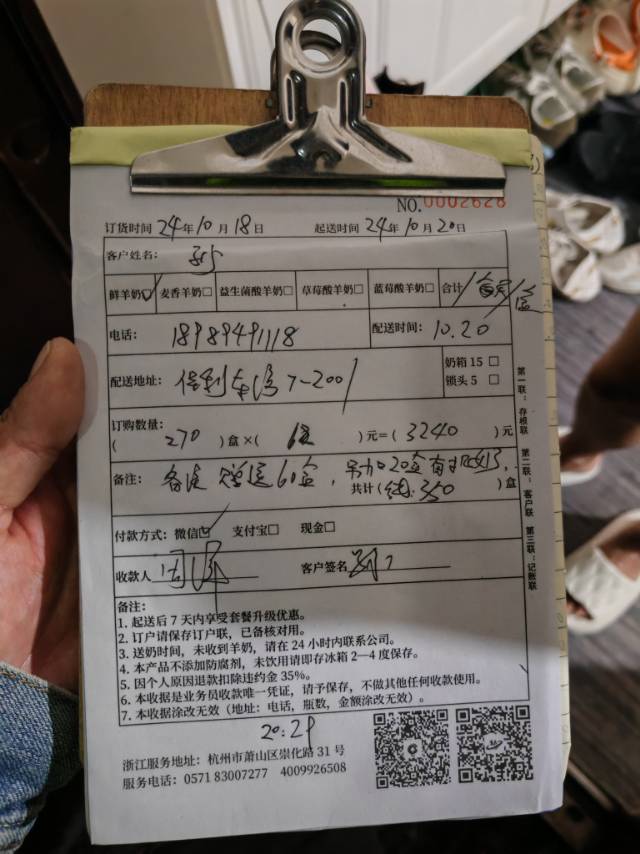 NO.0002628
订货时间 24年10月18日 起送时间 24年10月20日
客户姓名：
鲜羊奶☑ 麦香羊奶□ 益生菌酸羊奶□ 草莓酸羊奶□ 蓝莓酸羊奶□ 合计/ /
电话： 18989491118 配送时间： 10.20
配送地址： 保利东湾7-2001 奶箱 15 □
锁头 5 □
订购数量：
( 270 ) 盒 × ( ) 元 = ( 3240 ) 元
备注： 赠送60盒， 20盒
共计( 350 ) 盒
付款方式： 微信☑ 支付宝□ 现金□
收款人 客户签名
备注：
1. 起送后 7 天内享受套餐升级优惠。
2. 订户请保存订户联，已备核对用。
3. 送奶时间，未收到羊奶，请在 24 小时内联系公司。
4. 本产品不添加防腐剂，未饮用请即存冰箱 2—4 度保存。
5. 因个人原因退款扣除违约金 35%。
6. 本收据是业务员收款唯一凭证，请予保存，不做其他任何收款使用。
7. 本收据涂改无效（地址：电话，瓶数，金额涂改无效）。
20:29
浙江服务地址：杭州市萧山区崇化路 31 号
服务电话：0571 83007277 4009926508
第一联：存根联 第二联：客户联 第三联：记账联